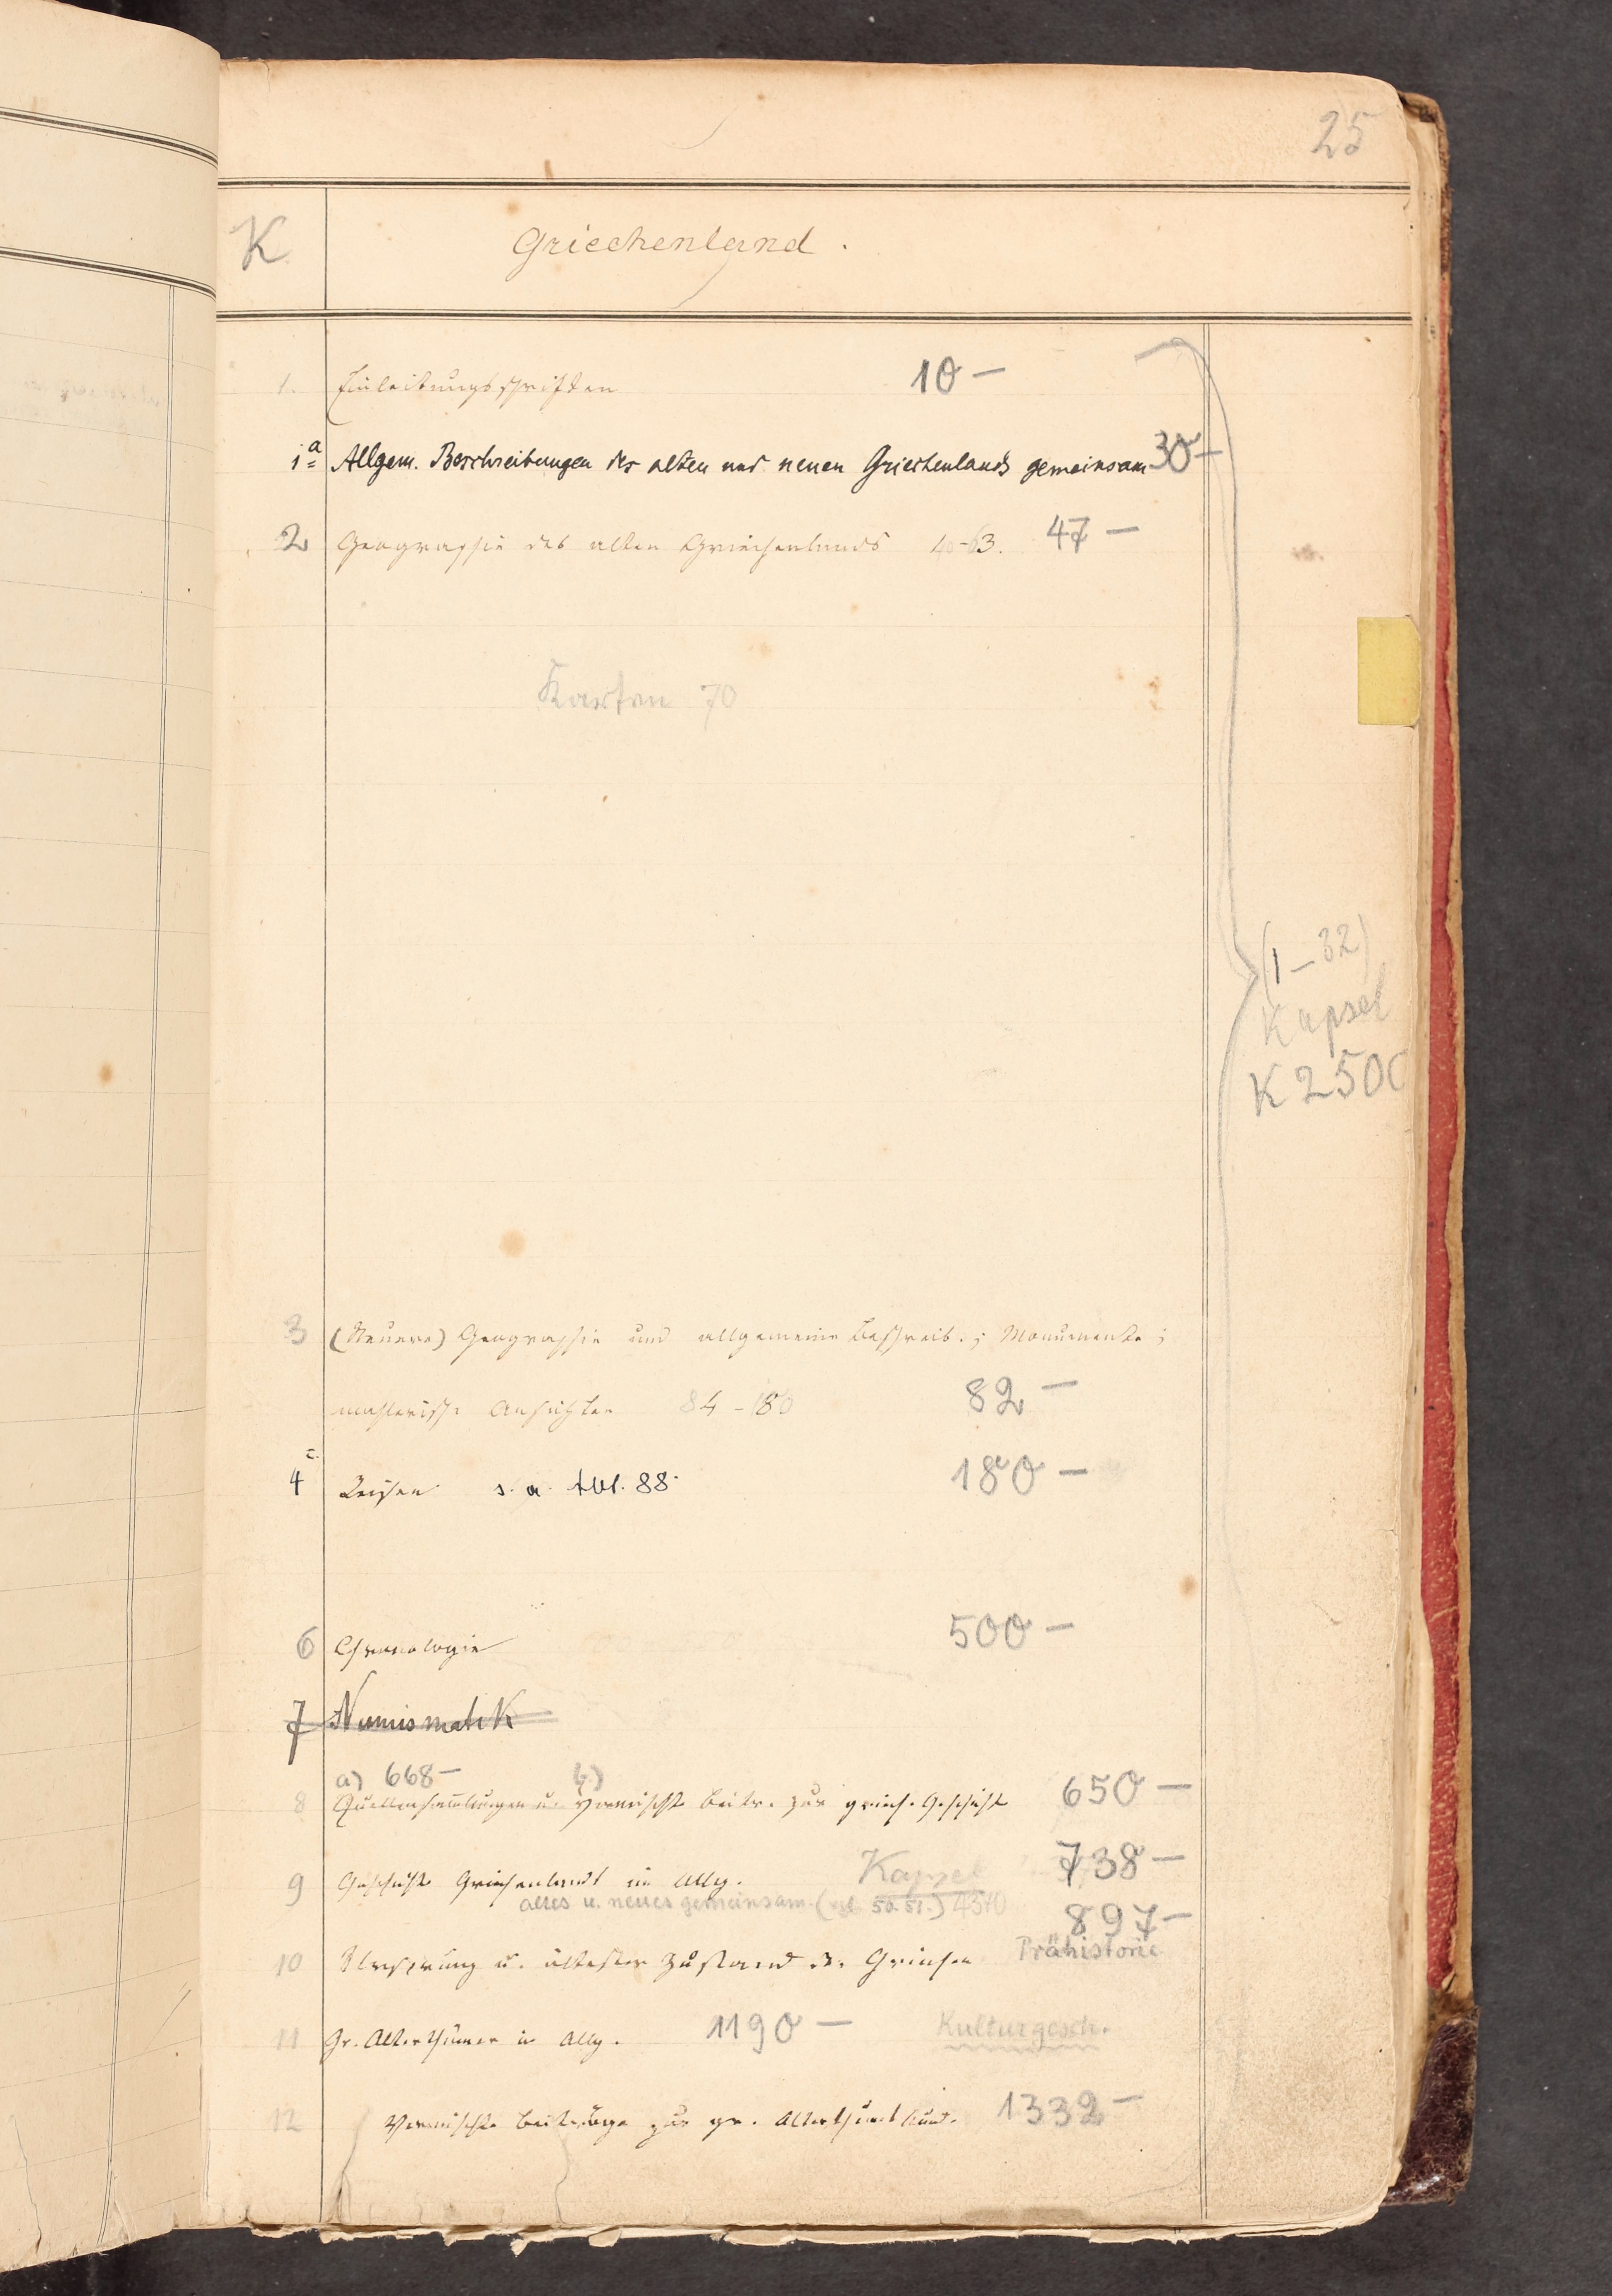 25
K Griechenland.
1. Einleitungsschriften 10 —
1a Allgem. Beschreibungen des alten und neuen Griechenlands gemeinsam 30 —
2 Geographie des alten Griechenlands 40-63. 47 —
Karten 70
(1-32)
Kapsel
K 2500
3 (Neuere) Geographie und allgemeine Beschreib.; Monumente;
malerische Ansichten 84-180 82 —
4 Reisen s. a. Abt. 88. 180 —
6 Chronologie 500 —
7 Numismatik
a) 668 — b)
8 Quellensammlungen u. Vermischte Beitr. zur griech. Geschichte 650 —
9 Geschichte Griechenlands im Allg. Kapsel 738 —
altes u. neues gemeinsam. (vgl. 50. 51.) 4370 897 —
10 Ursprung u. ältester Zustand der Griechen Prähistorie
11 Gr. Alterthümer im Allg. 1190 — Kulturgesch.
12 Vermischte Beiträge zur gr. Alterthumskunde. 1332 —